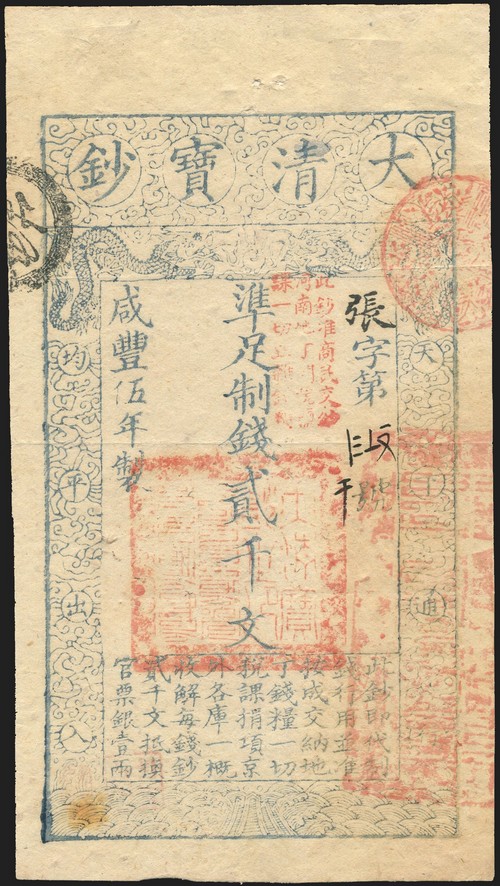 大清寶鈔
天下通行
均平出入
張字第
號
準足制錢貳千文
咸豐伍年製
此鈔准商民交
河南地丁
課一切
此鈔即代制
錢行用並准
按成交納地
丁錢糧一切
稅課捐項京
外各庫一概
收解每錢鈔
貳千文抵換
官票銀壹兩